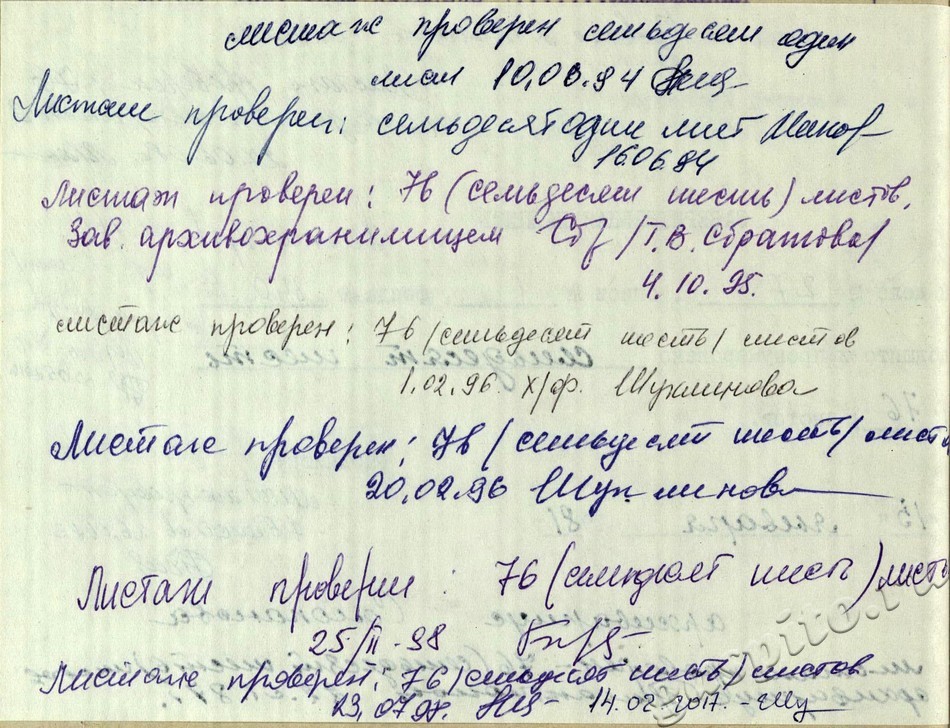 листаж проверен семьдесят один
лист 10.06.94
Листаж проверен: семьдесят один лист
16.06.94
Листаж проверен: 76 (семьдесят шесть) листов.
Зав. архивохранилищем /Т.В. Сбратова/
4.10.95.
листаж проверен: 76 /семьдесят шесть/ листов
1.02.96. х/ф. Шукшинова
Листаж проверен: 76 /семьдесят шесть/ листов
20.02.96 Шукшинова
Листаж проверен: 76 (семьдесят шесть) листов
25/II-98
Листаж проверен: 76 /семьдесят шесть/ листов
14.02.2017.